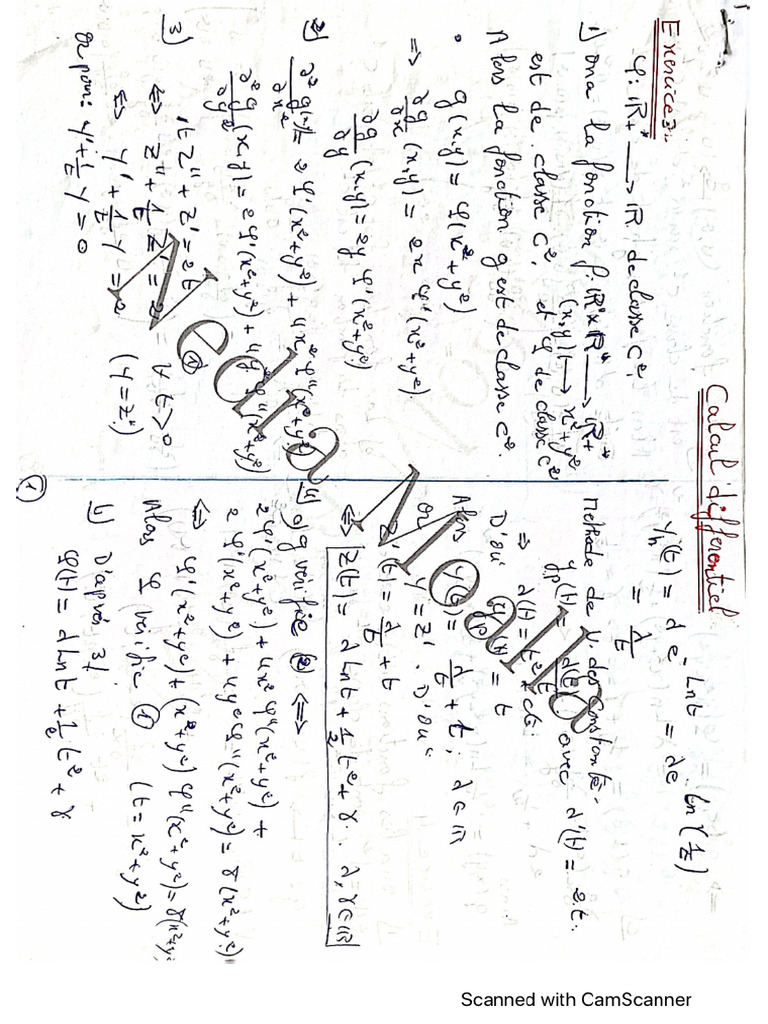 Calcul différentiel
Exercice 3:
φ: ℝ+* → ℝ de classe C²,
1) ona la fonction f: ℝ*×ℝ* → ℝ+*
(x,y) ↦ x²+y²
est de classe C², et φ de classe C²
Alors la fonction g est de classe C².
• g(x,y) = φ(x²+y²)
⇒ ∂g/∂x (x,y) = 2x φ'(x²+y²)
∂g/∂y (x,y) = 2y φ'(x²+y²)
2) ∂²g/∂x² = 2 φ'(x²+y²) + 4x² φ''(x²+y²)
∂²g/∂y² (x,y) = 2 φ'(x²+y²) + 4y² φ''(x²+y²)
3) tz'' + z' = 2t ①
⇔ z'' + 1/t z' = 2 ∀ t>0
⇔ y' + 1/t y = 2 (y = z')
y' + 1/t y = 0
y_h(t) = λ e^{-ln t} = λ e^{ln(1/t)}
= λ/t
Méthode de v. des constante.
y_p(t) = λ(t)/t avec λ'(t) = 2t.
⇒ λ(t) = t² + cte
D'où y_p(t) = t
Alors y(t) = λ/t + t; λ ∈ ℝ
ou y = z'. D'où
z'(t) = λ/t + t
⇔ z(t) = λ ln t + 1/2 t² + γ. λ, γ ∈ ℝ
4) a) g vérifie ② ⇔
2 φ'(x²+y²) + 4x² φ''(x²+y²) +
2 φ'(x²+y²) + 4y² φ''(x²+y²) = 8(x²+y²)
⇔ φ'(x²+y²) + (x²+y²) φ''(x²+y²) =
Alors φ vérifie ① (t = x²+y²)
b) D'après 3)
φ(t) = λ ln t + 1/2 t² + γ
①
Nedra Moalla
Scanned with CamScanner